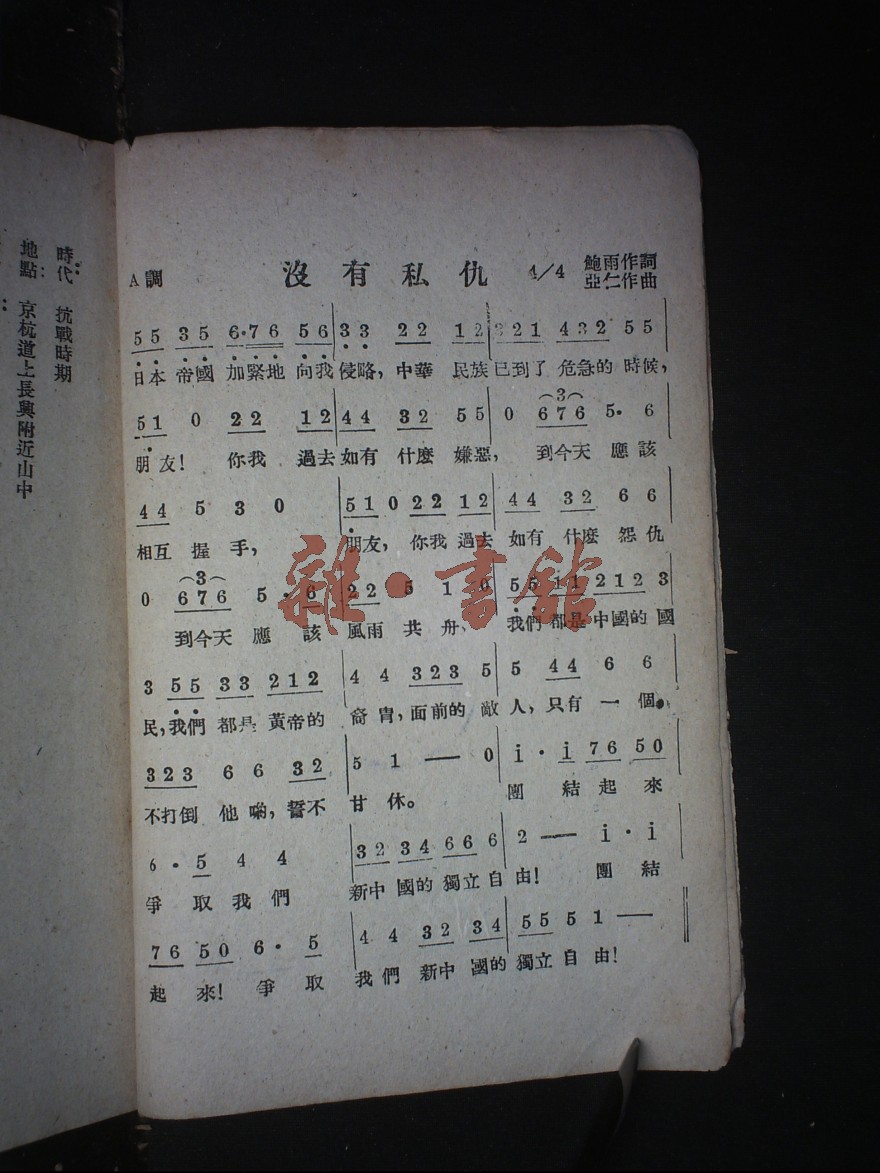 時代：抗戰時期
地點：京杭道上長興附近山中
A調 沒有私仇 4/4 鮑雨作詞
亞仁作曲
5 5 3 5 6·7 6 5 6 | 3 3 2 2 1 2 | 3 2 1 4 3 2 5 5 |
日本 帝國 加緊地 向我 侵略，中華 民族 已到了 危急的 時候，
5 1 0 2 2 1 2 | 4 4 3 2 5 5 | 0 6 7 6 5· 6 |
朋友！ 你我 過去 如有 什麼 嫌惡， 到今天 應該
4 4 5 3 0 | 5 1 0 2 2 1 2 | 4 4 3 2 6 6 |
相互 握 手， 朋友，你我 過去 如有 什麼 怨仇
0 6 7 6 5· 6 | 2 2 5 1 0 | 5 5 1 1 2 1 2 3 |
到今天 應 該 風雨 共 舟、 我們 都是 中國的 國
3 5 5 3 3 2 1 2 | 4 4 3 2 3 5 | 5 4 4 6 6 |
民，我們 都是 黃帝的 裔 冑，面前的 敵 人，只有 一 個。
3 2 3 6 6 3 2 | 5 1 — 0 | i· i 7 6 5 0 |
不打倒 他 喲，誓不 甘 休。 團 結 起 來
6· 5 4 4 | 3 2 3 4 6 6 6 | 2 — i· i |
爭 取 我 們 新中 國的 獨立 自 由！ 團 結
7 6 5 0 6· 5 | 4 4 3 2 3 4 | 5 5 5 1 — ||
起 來！ 爭 取 我 們 新中 國的 獨立 自 由！
雜·書館